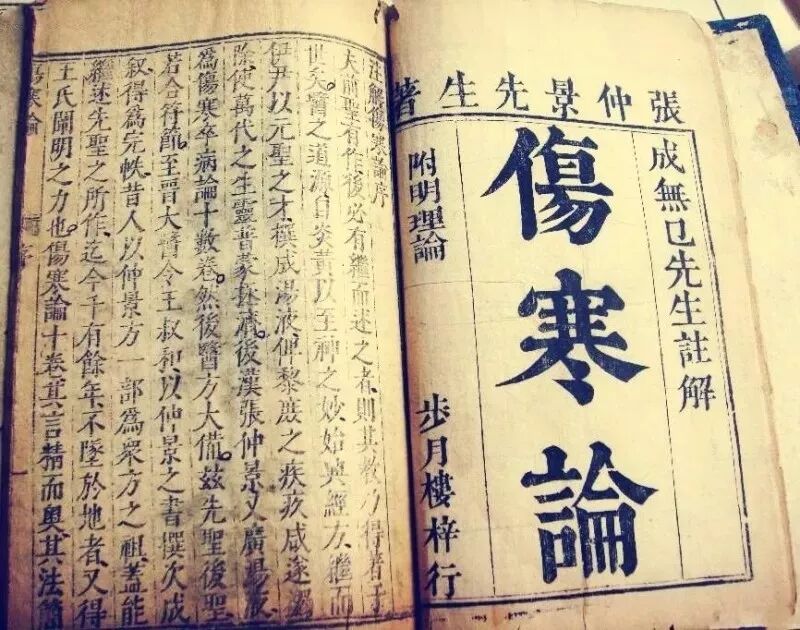 張仲景先生著
成無已先生註解
傷寒論
附明理論
步月樓梓行
注解傷寒論序
夫前聖有作後必有繼而述之者則其教乃得著于
世矣醫之道源自炎黃以至神之妙始興經方繼而
伊尹以元聖之才撰成湯液俾黎庶之疾疢咸遂蠲
除使萬代之生靈普蒙拯濟後漢張仲景又廣湯液
為傷寒卒病論十數卷然後醫方大備茲先聖後聖
若合符節至晉大醫令王叔和以仲景之書撰次成
叙得為完帙昔人以仲景方一部為眾方之祖蓋能
繼述先聖之所作迄今千有餘年不墜於地者又得
王氏闡明之力也傷寒論十卷其言精而奧其法簡
傷寒論 序